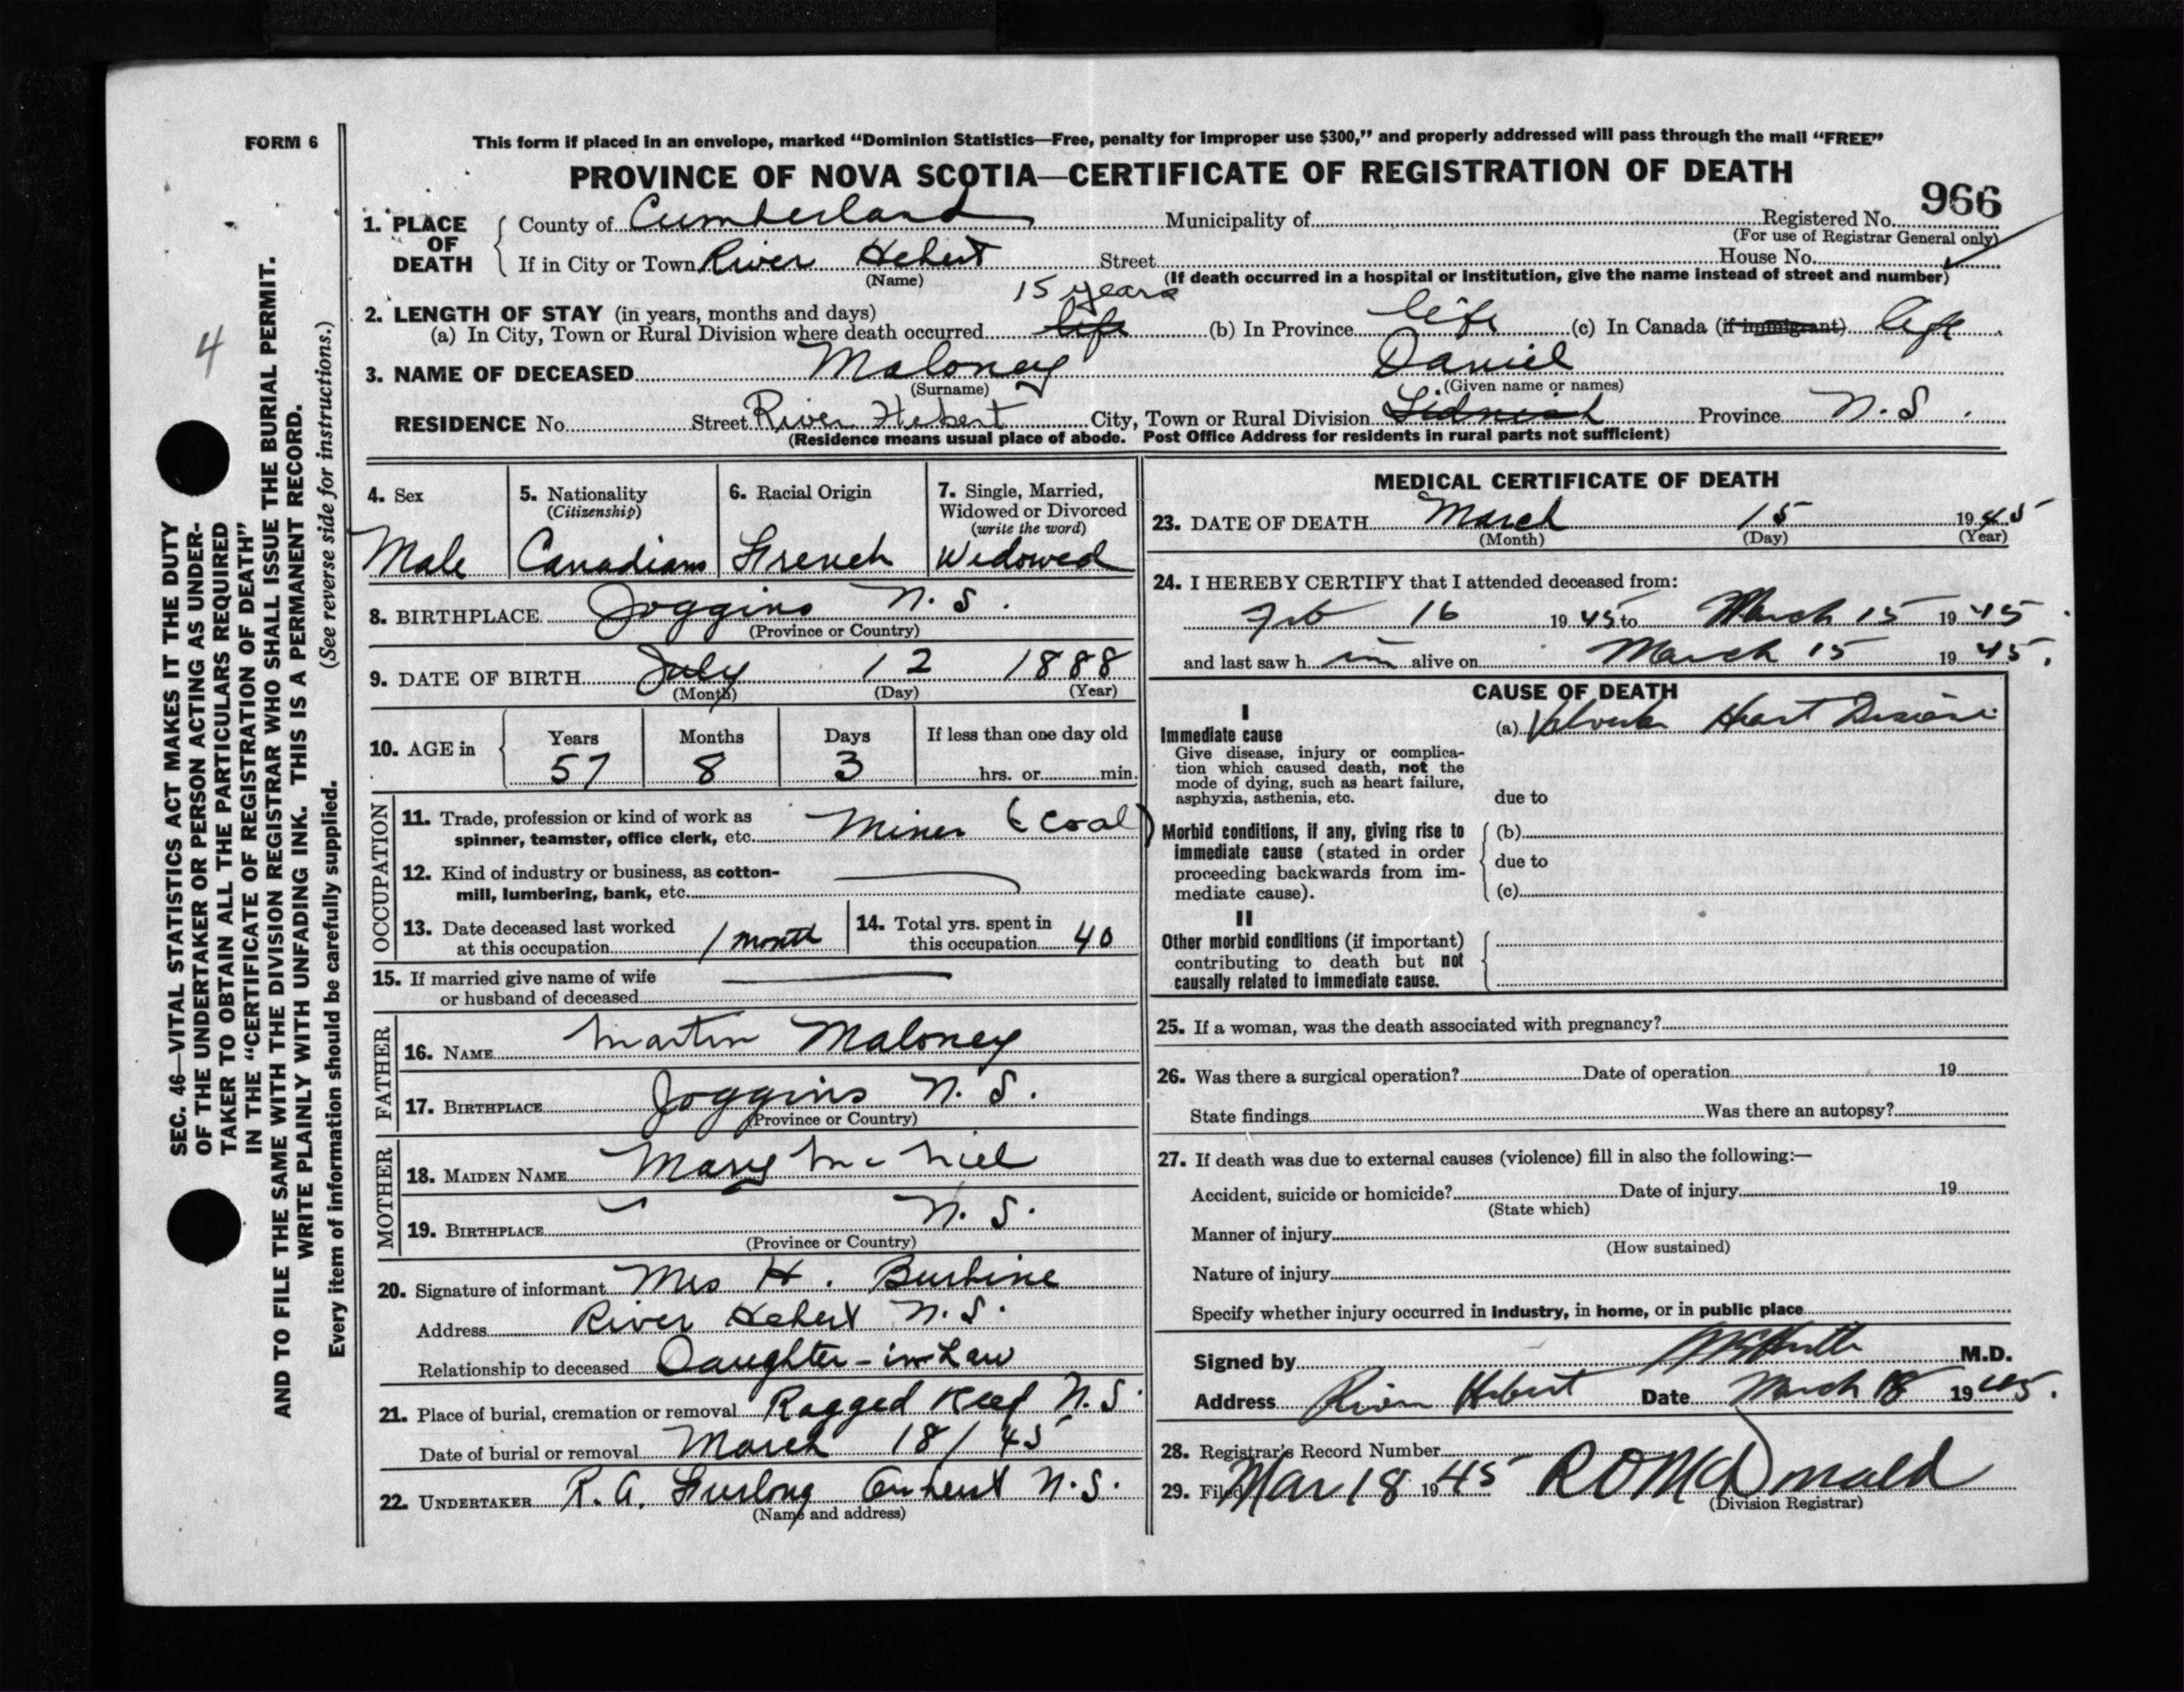 FORM 6
This form if placed in an envelope, marked “Dominion Statistics—Free, penalty for improper use $300,” and properly addressed will pass through the mail “FREE”
PROVINCE OF NOVA SCOTIA—CERTIFICATE OF REGISTRATION OF DEATH
966
1. PLACE OF DEATH { County of Cumberland Municipality of Registered No.
(For use of Registrar General only)
If in City or Town River Hebert Street House No.
(Name) (If death occurred in a hospital or institution, give the name instead of street and number)
15 years
2. LENGTH OF STAY (in years, months and days)
(a) In City, Town or Rural Division where death occurred life (b) In Province life (c) In Canada (if immigrant) life
3. NAME OF DECEASED Maloney Daniel
(Surname) (Given name or names)
RESIDENCE No. Street River Hebert City, Town or Rural Division Province N.S.
(Residence means usual place of abode. Post Office Address for residents in rural parts not sufficient)
4. Sex
Male
5. Nationality
(Citizenship)
Canadian
6. Racial Origin
French
7. Single, Married,
Widowed or Divorced
(write the word)
Widowed
8. BIRTHPLACE Joggins N.S.
(Province or Country)
9. DATE OF BIRTH July 12 1888
(Month) (Day) (Year)
10. AGE in { Years Months Days If less than one day old
57 8 3 hrs. or min.
OCCUPATION
11. Trade, profession or kind of work as
spinner, teamster, office clerk, etc. Miner (Coal)
12. Kind of industry or business, as cotton-
mill, lumbering, bank, etc.
13. Date deceased last worked
at this occupation 1 month
14. Total yrs. spent in
this occupation 40
15. If married give name of wife
or husband of deceased
FATHER
16. NAME Martin Maloney
17. BIRTHPLACE Joggins N.S.
(Province or Country)
MOTHER
18. MAIDEN NAME Mary McNiel
19. BIRTHPLACE N.S.
(Province or Country)
20. Signature of informant Mrs H. Burbine
Address River Hebert N.S.
Relationship to deceased Daughter-in-Law
21. Place of burial, cremation or removal Ragged Reef N.S.
Date of burial or removal March 18/45
22. UNDERTAKER R.A. Furlong Amherst N.S.
(Name and address)
MEDICAL CERTIFICATE OF DEATH
23. DATE OF DEATH March 15 1945
(Month) (Day) (Year)
24. I HEREBY CERTIFY that I attended deceased from:
Feb 16 1945 to March 15 1945
and last saw h im alive on March 15 1945.
CAUSE OF DEATH
I
Immediate cause
Give disease, injury or complica-
tion which caused death, not the
mode of dying, such as heart failure,
asphyxia, asthenia, etc.
(a) Valvular Heart Disease
due to
Morbid conditions, if any, giving rise to
immediate cause (stated in order
proceeding backwards from im-
mediate cause).
(b)
due to
(c)
II
Other morbid conditions (if important)
contributing to death but not
causally related to immediate cause.
25. If a woman, was the death associated with pregnancy?
26. Was there a surgical operation? Date of operation 19
State findings Was there an autopsy?
27. If death was due to external causes (violence) fill in also the following:—
Accident, suicide or homicide? Date of injury 19
(State which)
Manner of injury
(How sustained)
Nature of injury
Specify whether injury occurred in industry, in home, or in public place
Signed by M.D.
Address River Hebert Date March 18 1945.
28. Registrar's Record Number
29. Filed Mar 18 1945 R O McDonald
(Division Registrar)
4
SEC. 46—VITAL STATISTICS ACT MAKES IT THE DUTY
OF THE UNDERTAKER OR PERSON ACTING AS UNDER-
TAKER TO OBTAIN ALL THE PARTICULARS REQUIRED
IN THE “CERTIFICATE OF REGISTRATION OF DEATH”
AND TO FILE THE SAME WITH THE DIVISION REGISTRAR WHO SHALL ISSUE THE BURIAL PERMIT.
WRITE PLAINLY WITH UNFADING INK. THIS IS A PERMANENT RECORD.
Every item of information should be carefully supplied. (See reverse side for instructions.)